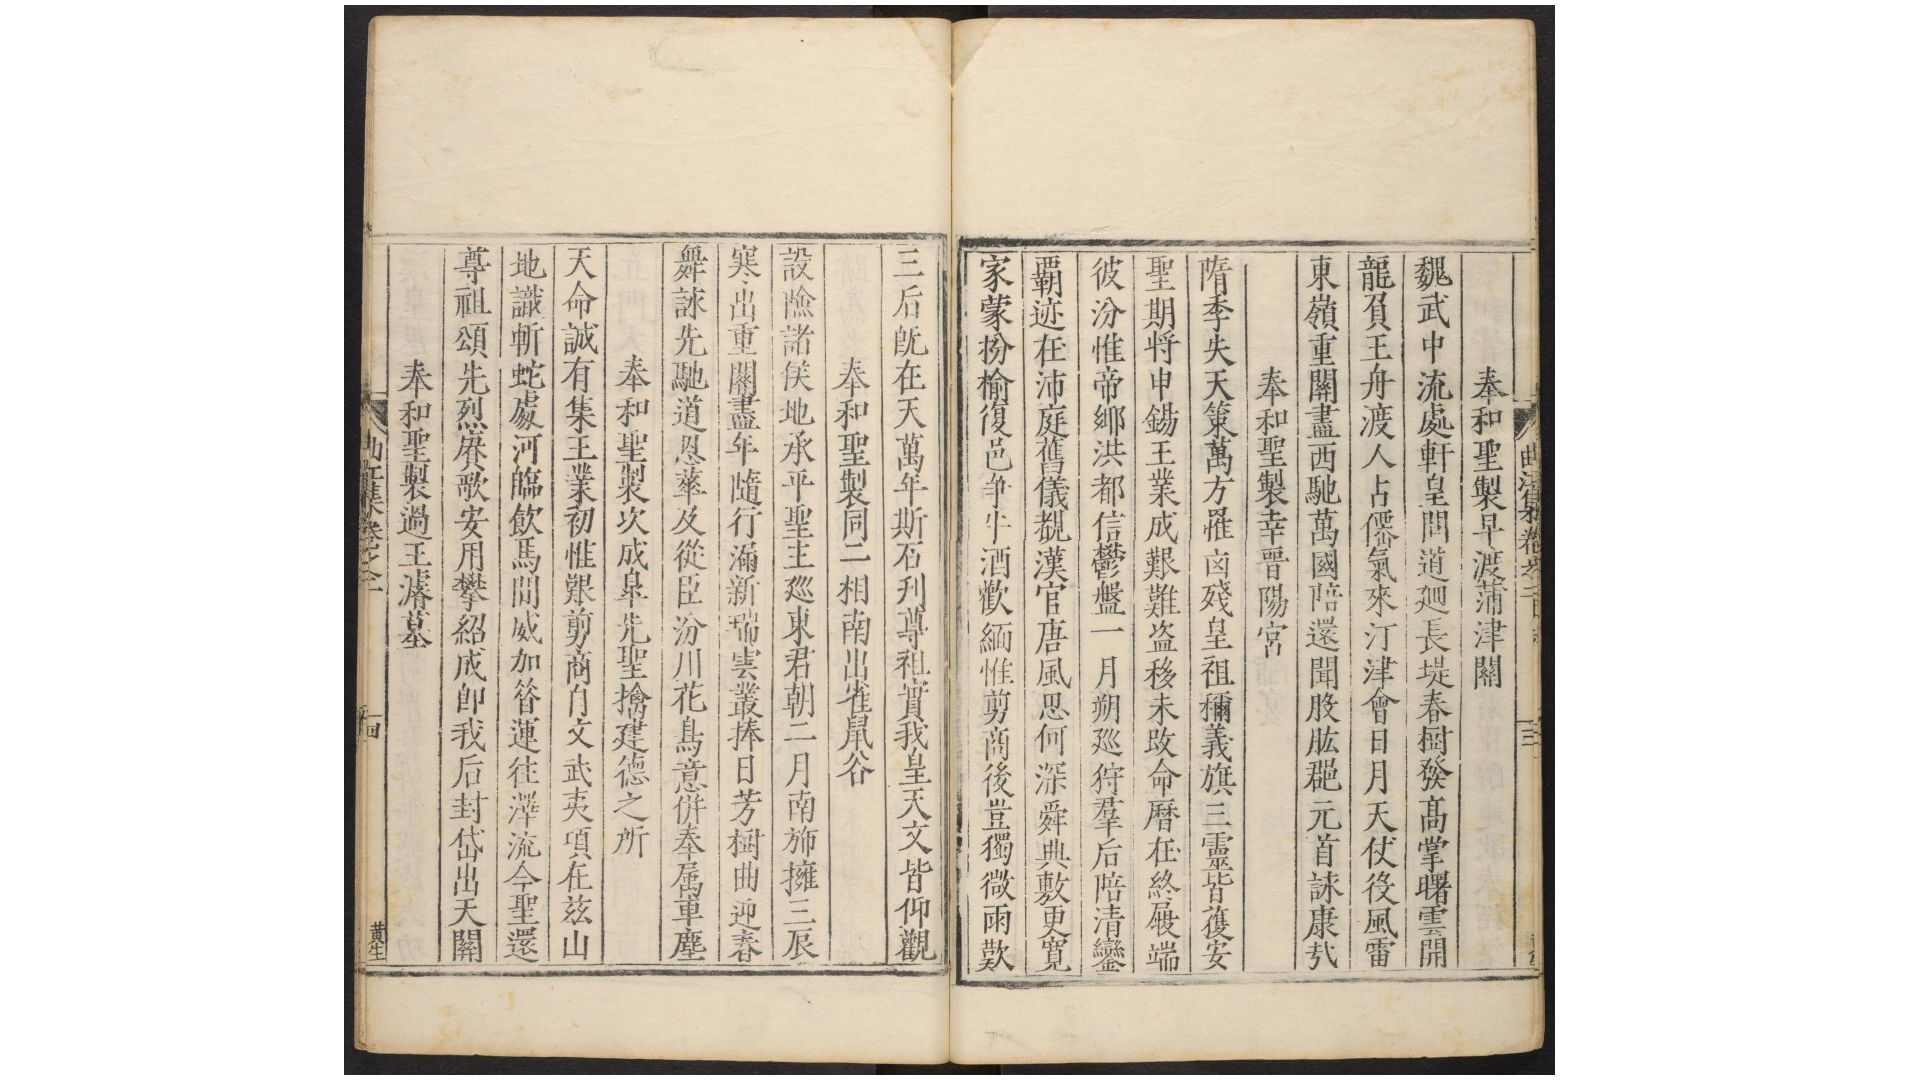 奉和聖製早渡蒲津關
魏武中流處軒皇問道廻長堤春樹發髙掌曙雲開
龍負王舟渡人占僊氣來汀津會日月天仗役風雷
東嶺重關盡西馳萬國陪還聞股肱郡元首詠康哉
奉和聖製幸晉陽宮
隋季失天策萬方罹凶殘皇祖稱義旗三靈皆獲安
聖期將申錫王業成艱難盗移未改命曆在終履端
彼汾惟帝鄉洪都信鬱盤一月朔廵狩羣后陪清鑾
覇迹在沛庭舊儀覩漢官唐風思何深舜典敷更寛
家蒙枌榆復邑爭牛酒歡緬惟剪商後豈獨微雨歎
三后旣在天萬年斯石刋尊祖實我皇天文皆仰觀
奉和聖製同二相南出雀鼠谷
設險諸侯地承平聖主廵東君朝二月南斾擁三辰
寒出重關盡年隨行漏新瑞雲叢捧日芳樹曲迎春
舞詠先馳道恩華及從臣汾川花鳥意併奉属車塵
奉和聖製次成臯先聖擒建德之所
天命誠有集王業初惟艱剪商自文武夷項在兹山
地識斬蛇處河臨飲馬間威加昔運往澤流今聖還
尊祖頌先烈賡歌安用攀紹成即我后封岱出天關
奉和聖製過王濬墓
曲江集卷之二
四
黄生
曲江集卷之二
三